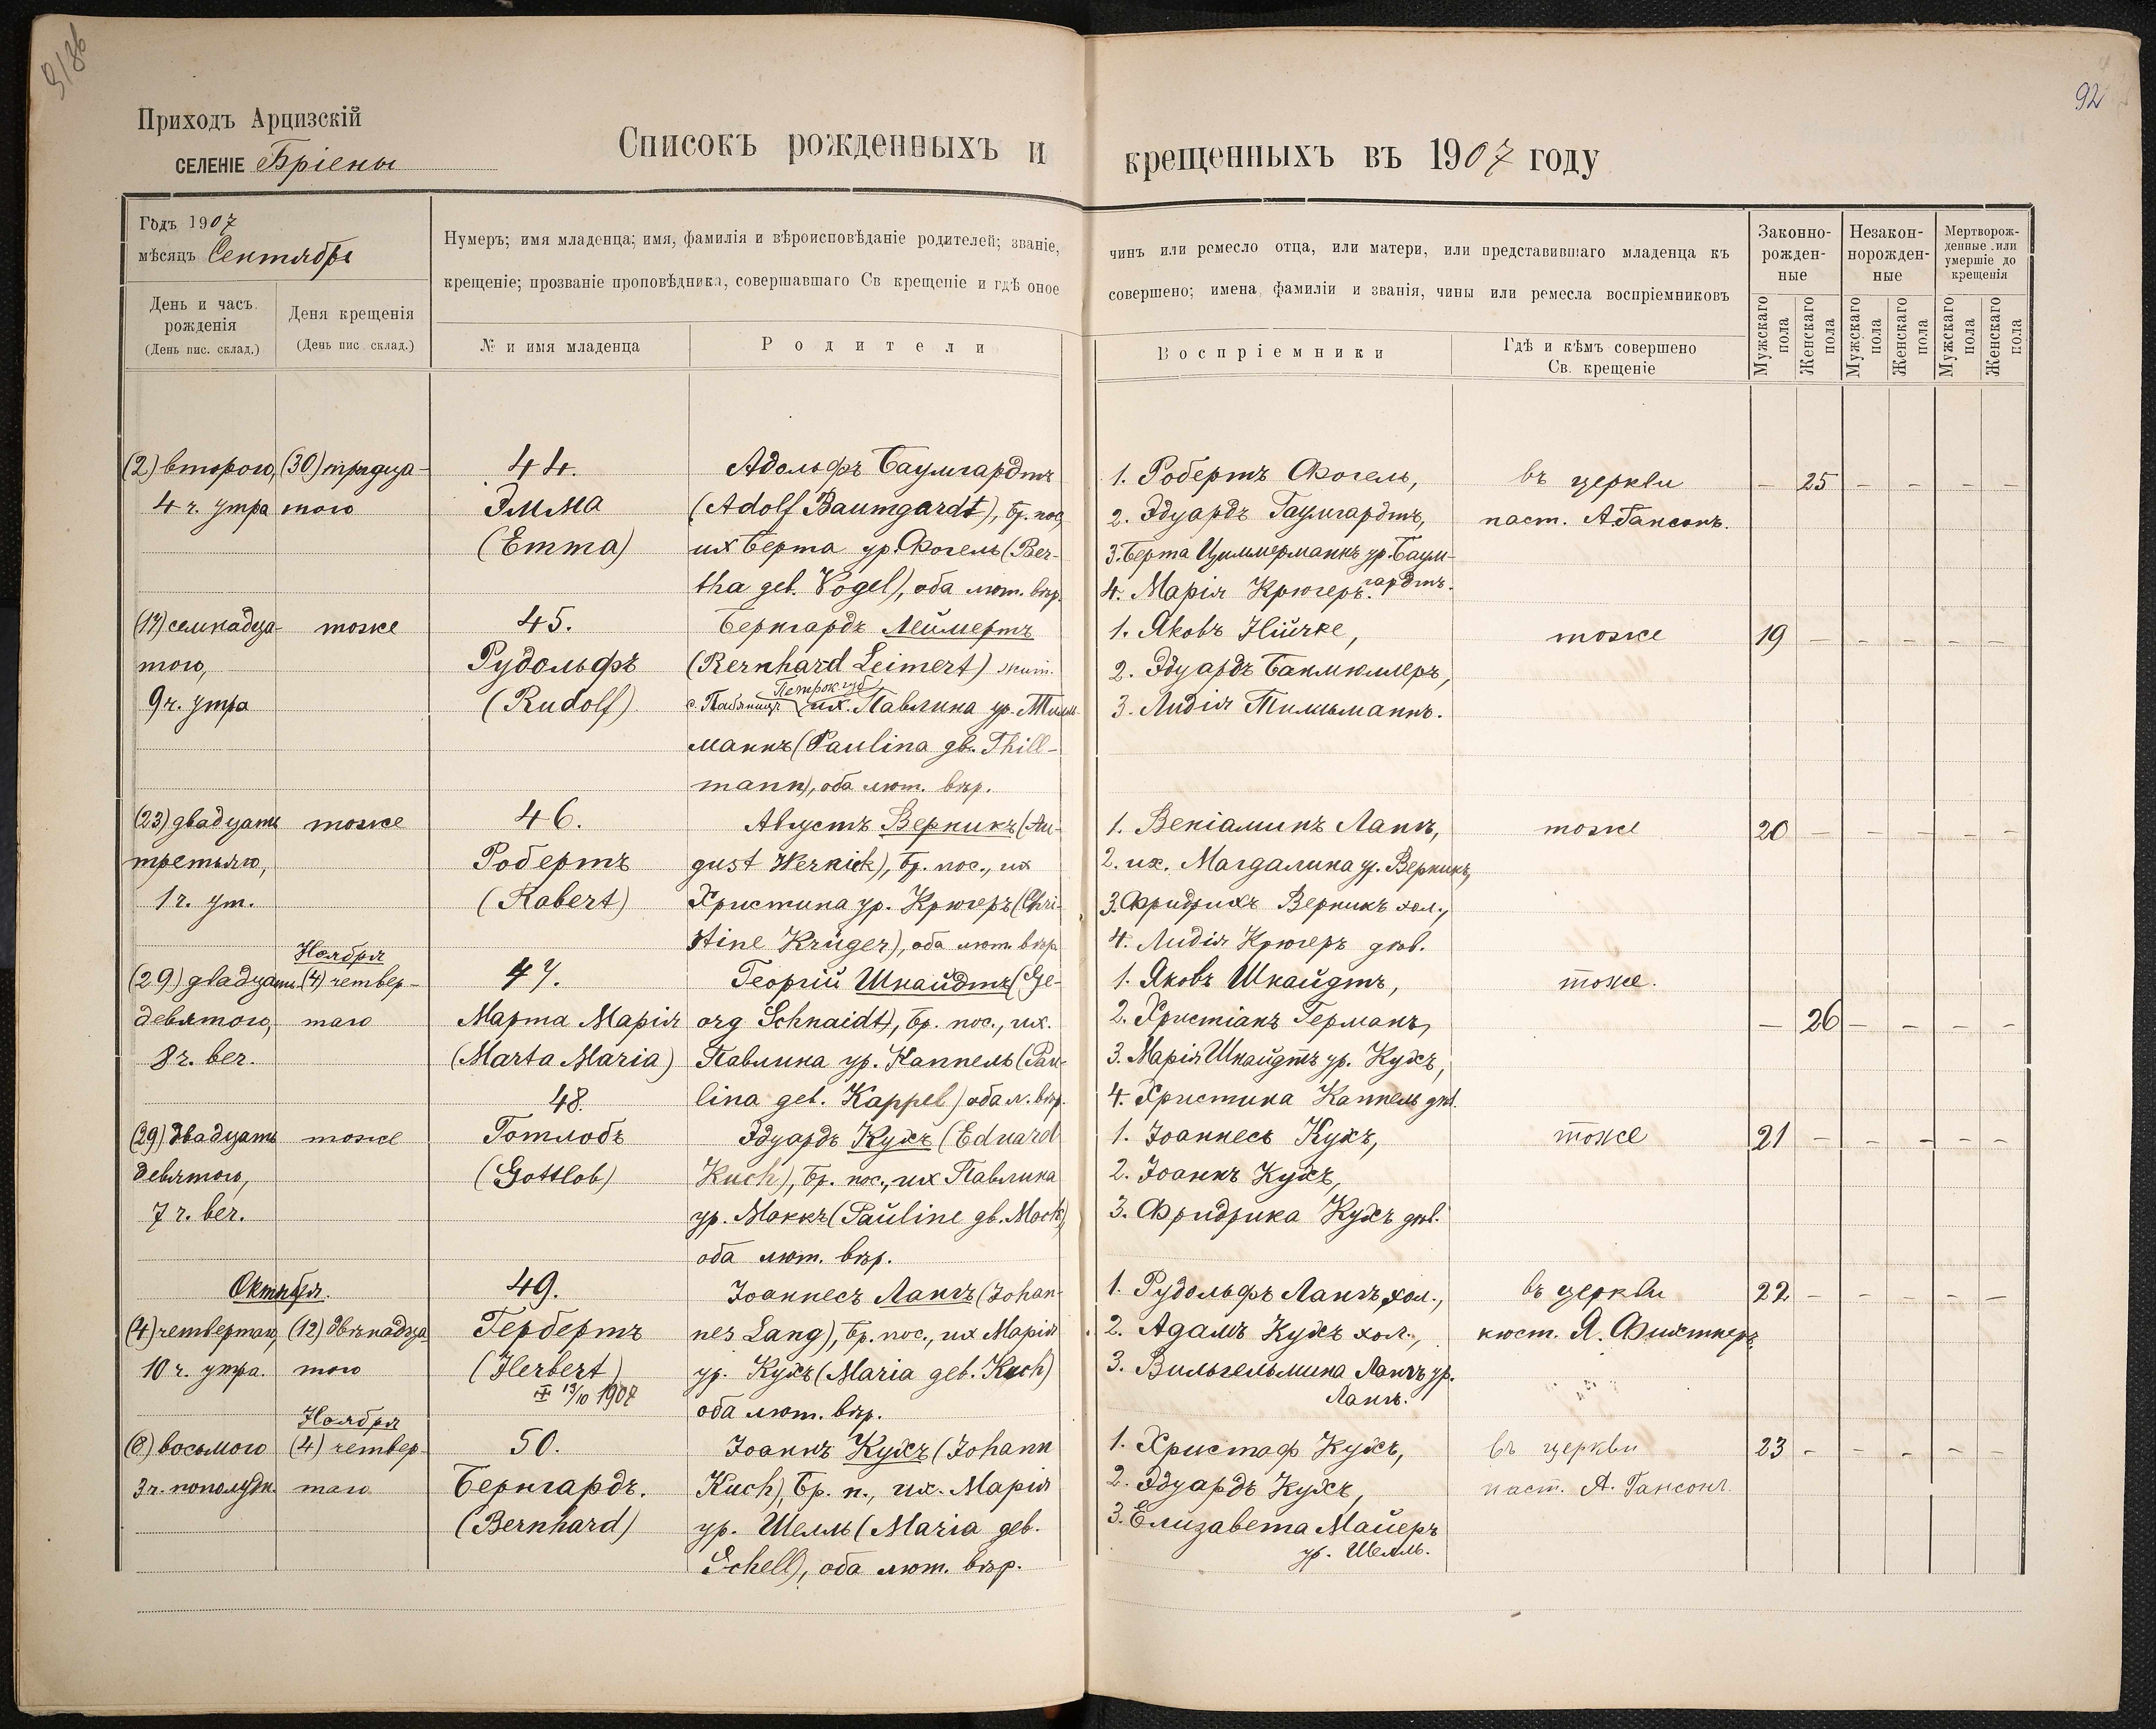 92
Приходъ Арцизскій
СЕЛЕНІЕ Бріены
Списокъ рожденныхъ и крещенныхъ въ 1907 году
Годъ 1907
мѣсяцъ Сентябрь
День и часъ рожденія
(День пис. склад.)
Деня крещенія
(День пис. склад.)
Нумеръ; имя младенца; имя, фамилія и вѣроисповѣданіе родителей; званіе, чинъ или ремесло отца, или матери, или представившаго младенца къ
крещеніе; прозваніе проповѣдника, совершавшаго Св крещеніе и гдѣ оное совершено; имена фамиліи и званія, чины или ремесла воспріемниковъ
№ и имя младенца
Родители
Воспріемники
Гдѣ и кѣмъ совершено
Св. крещеніе
Законно-рожден-ные
Незакон-норожден-ные
Мертворож-денные или умершіе до крещенія
Мужскаго пола
Женскаго пола
Мужскаго пола
Женскаго пола
Мужскаго пола
Женскаго пола
(2) второго, (30) тридца-
4 ч. утра того
44.
Эмма
(Emma)
Адольфъ Баумгардтъ
(Adolf Baumgardt), бр. пос,
их Берта ур. Фогель (Ber-
tha geb. Vogel), оба лют. вѣр.
1. Робертъ Фогель,
2. Эдуардъ Баумгардтъ,
3. Берта Циммерманнъ ур. Баум-
гардтъ.
4. Марія Крюгеръ.
въ церкви
паст. А. Гансонъ.
— 25 — — — —
(17) семнадца-
того,
9 ч. утра
тоже
45.
Рудольфъ
(Rudolf)
Бернгардъ Леймертъ
(Bernhard Leimert) жит.
Петрок. губ
с. Пабяницъ их. Павлина ур. Тилль-
маннъ (Paulina gb. Thill-
mann), оба лют. вѣр.
1. Яковъ Нійчке,
2. Эдуардъ
3. Лидія Тилльманнъ.
тоже
19 — — — — —
(23) двадцать
третьяго,
1 ч. ут.
тоже
46.
Робертъ
(Robert)
Августъ Верникъ (Au-
gust Wernick), бр. пос., их
Христина ур. Крюгеръ (Chri-
stine Krüger), оба лют. вѣр
1. Веніаминъ Лангъ,
2. их. Магдалина ур. Верникъ,
3. Фридрихъ Верникъ хол.,
4. Лидія Крюгеръ дѣв.
тоже
20 — — — — —
Ноября
(29) двадцать (4) четвер-
девятого, таго
8 ч. веч.
47.
Марта Марія
(Marta Maria)
Георгій Шнайдтъ (Ge-
org Schnaidt), бр. пос., их.
Павлина ур. Каппель (Pau-
lina geb. Kappel) оба л. вѣр.
1. Яковъ Шнайдтъ,
2. Христіанъ Германъ,
3. Марія Шнайдтъ ур. Кухъ,
4. Христина Каппель дѣв.
тоже.
— 26 — — — —
(29) двадцать
девятого,
7 ч. веч.
тоже
48.
Готлобъ
(Gottlob)
Эдуардъ Кухъ (Eduard
Kuch), бр. пос., их Павлина
ур. Моккъ (Pauline gb. Mock),
оба лют. вѣр.
1. Іоаннесъ Кухъ,
2. Іоаннъ Кухъ,
3. Фридрика Кухъ дѣв.
тоже
21 — — — — —
Октября.
(4) четвертаго, (12) двѣнадца
10 ч. утра. того
49.
Гербертъ
(Herbert)
13/10 1907
Іоаннесъ Лангъ (Johan-
nes Lang), бр. пос., их Марія
ур. Кухъ (Maria geb. Kuch)
оба лют. вѣр.
1. Рудольфъ Лангъ хол.,
2. Адамъ Кухъ хол.,
3. Вильгельмина Лангъ ур.
Лангъ.
въ церкви
кюст. Я. Фихтнеръ
22 — — — — —
Ноября
(8) восьмого (4) четвер-
3 ч. пополудн. таго
50.
Бернгардъ.
(Bernhard)
Іоаннъ Кухъ (Johann
Kuch), бр. п., их. Марія
ур. Шелль (Maria geb.
Schell), оба лют. вѣр.
1. Христоф Кухъ,
2. Эдуардъ Кухъ,
3. Елизавета Майеръ
ур. Шелль.
въ церкви
паст. А. Гансонъ
23 — — — — —